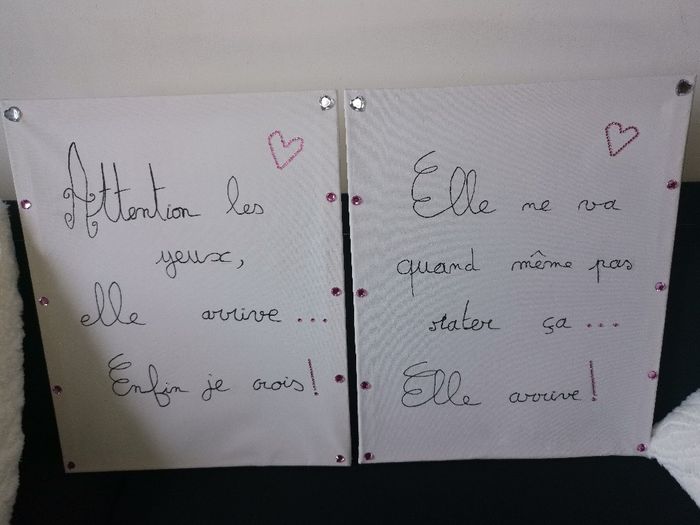 Attention les
yeux,
elle arrive ...
Enfin je crois !
Elle ne va
quand même pas
rater ça ...
Elle arrive !